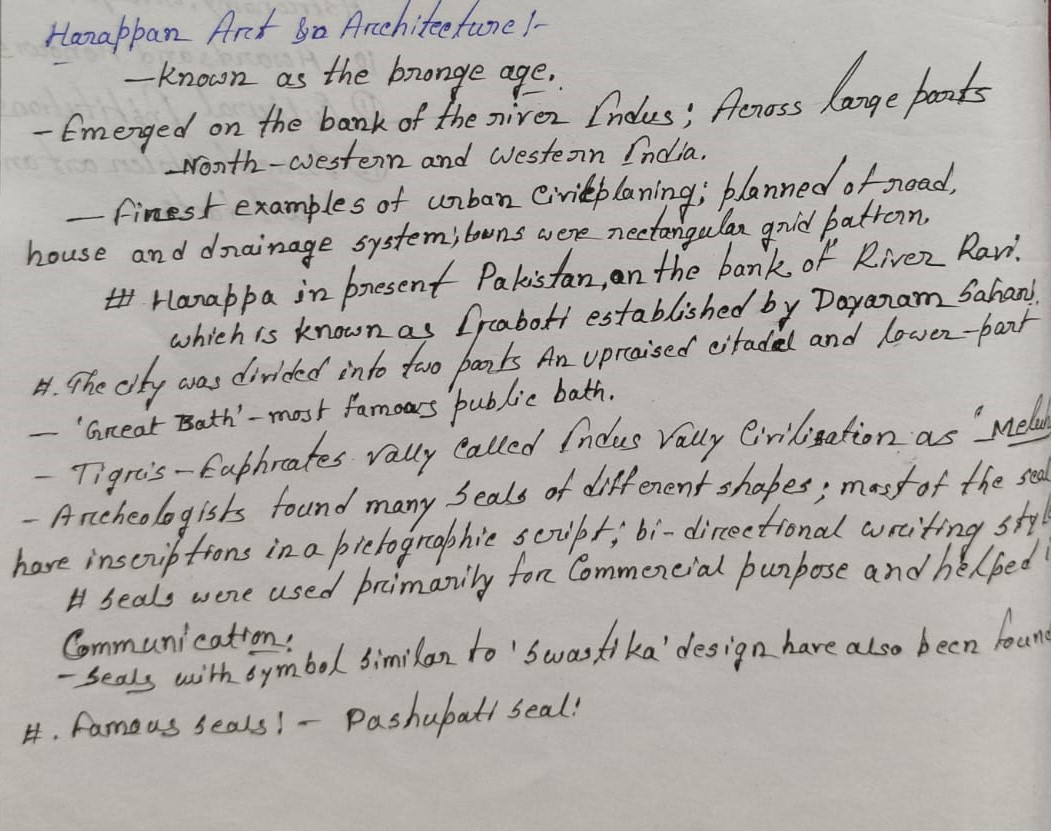 Harappan Art & Architecture :-
- Known as the bronge age.
- Emerged on the bank of the river Indus; Across large parts
North-western and western India.
- finest examples of urban Civicplaning; planned of road,
house and drainage system; were rectangular grid pattern.
# Harappa in present Pakistan, on the bank of River Ravi.
which is known as established by Dayaram Sahani.
#. The city was divided into two parts An upraised citadel and lower-part
- 'Great Bath' - most famoors public bath.
- Tigris-Euphrates vally called Indus vally Civilization as "Meluh
- Archeologists found many seals of different shapes; most of the seal
have inscriptions in a pictographic script; bi-directional writing styl
# seals were used primarily for Commercial purpose and helped
Communication:
- Seals with symbol similar to 'swastika' design have also been foun
#. famous seals! - Pashupati seal!